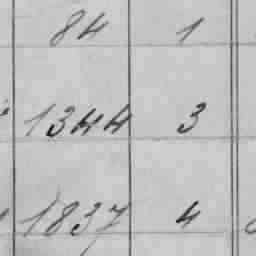 84 1
1344 3
1837 4